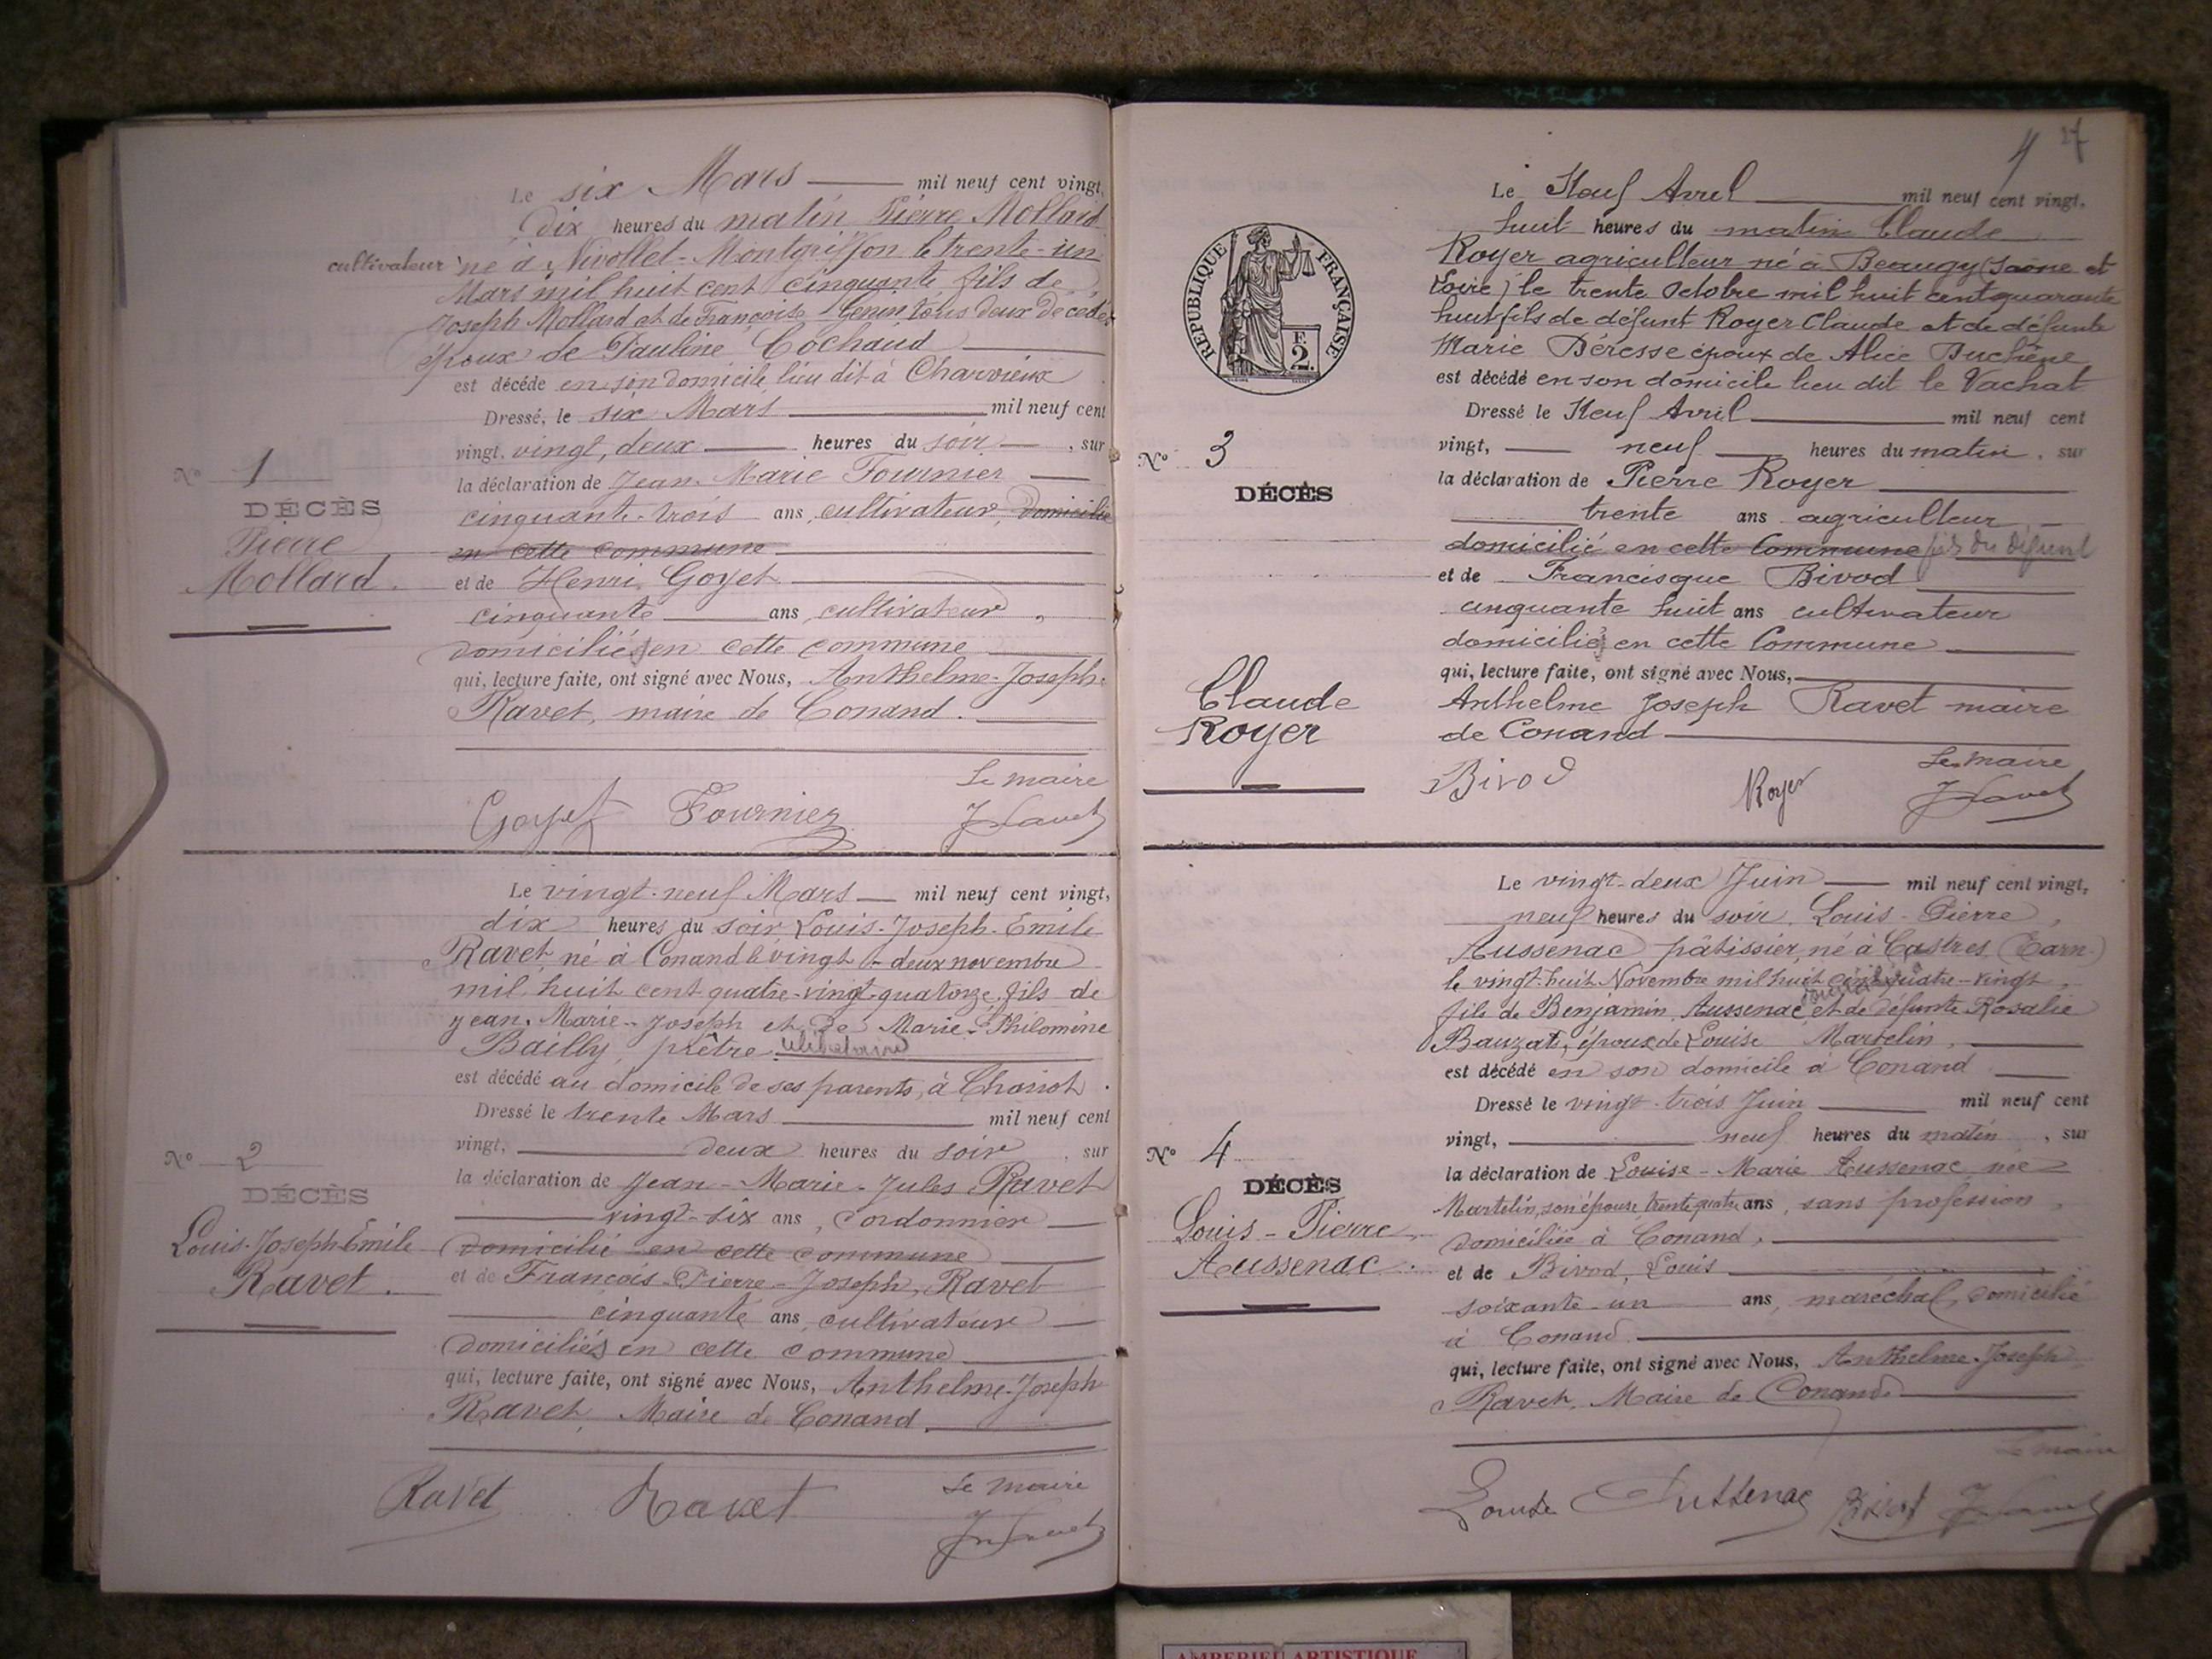 Le six Mars mil neuf cent vingt,
dix heures du matin Pierre Mollard
cultivateur né à Nivollet-Montgriffon le trente-un
Mars mil huit cent cinquante, fils de
Joseph Mollard et de Françoise Genin tous deux décédés
époux de Pauline Cochaud
est décédé en son domicile lieu dit à Charvieux
Dressé, le six Mars mil neuf cent
vingt, vingt, deux heures du soir, sur
la déclaration de Jean-Marie Fournier
cinquante-trois ans, cultivateur, domicilié
en cette commune
et de Henri Goyet
cinquante ans, cultivateur,
domiciliés en cette commune
qui, lecture faite, ont signé avec Nous, Anthelme-Joseph
Ravet, maire de Conand.
Le maire
Goyet Fournier J Ravet
N° 1
DÉCÈS
Pierre
Mollard.
Le vingt-neuf Mars mil neuf cent vingt,
dix heures du soir Louis-Joseph-Emile
Ravet né à Conand le vingt-deux novembre
mil huit cent quatre-vingt-quatorze, fils de
Jean-Marie-Joseph et de Marie-Philomène
Bailly, prêtre célibataire
est décédé au domicile de ses parents, à Charriot.
Dressé le trente Mars mil neuf cent
vingt, deux heures du soir, sur
la déclaration de Jean-Marie-Jules Ravet
vingt-six ans, cordonnier
domicilié en cette commune
et de François-Pierre-Joseph, Ravet
cinquante ans, cultivateur
domiciliés en cette commune
qui, lecture faite, ont signé avec Nous, Anthelme-Joseph
Ravet, Maire de Conand.
Le maire
Ravet Ravet J Ravet
N° 2
DÉCÈS
Louis-Joseph-Emile
Ravet.
4 27
RÉPUBLIQUE FRANÇAISE
F.
2.
Le Neuf Avril mil neuf cent vingt,
huit heures du matin Claude
Royer agriculteur né à Beaugy (Saône et
Loire) le trente Octobre mil huit cent quarante
huit fils de défunt Royer Claude et de défunte
Marie Déresse époux de Alice Duchêne
est décédé en son domicile lieu dit le Vachat
Dressé le Neuf Avril mil neuf cent
vingt, neuf heures du matin, sur
la déclaration de Pierre Royer
trente ans agriculteur
domicilié en cette Commune fils du défunt
et de Francisque Bivod
cinquante huit ans cultivateur
domiciliés en cette Commune
qui, lecture faite, ont signé avec Nous,
Anthelme Joseph Ravet maire
de Conand
Le maire
Bivod Royer J Ravet
N° 3
DÉCÈS
Claude
Royer
Le vingt-deux Juin mil neuf cent vingt,
neuf heures du soir, Louis-Pierre,
Aussenac, pâtissier, né à Castres (Tarn)
le vingt-huit Novembre mil huit cent quatre-vingt,
fils de Benjamin, Aussenac et de défunte Rosalie
Bauzat, époux de Louise Martelin,
est décédé en son domicile à Conand
Dressé le vingt-trois Juin mil neuf cent
vingt, neuf heures du matin, sur
la déclaration de Louise-Marie Aussenac née
Martelin, son épouse, trente quatre ans, sans profession,
domiciliée à Conand,
et de Bivod, Louis
soixante-un ans, maréchal, domicilié
à Conand.
qui, lecture faite, ont signé avec Nous, Anthelme-Joseph
Ravet, Maire de Conand.
Le maire
Louise Aussenac Bivod J Ravet
N° 4
DÉCÈS
Louis-Pierre
Aussenac.
AMBERIEU ARTISTIQUE